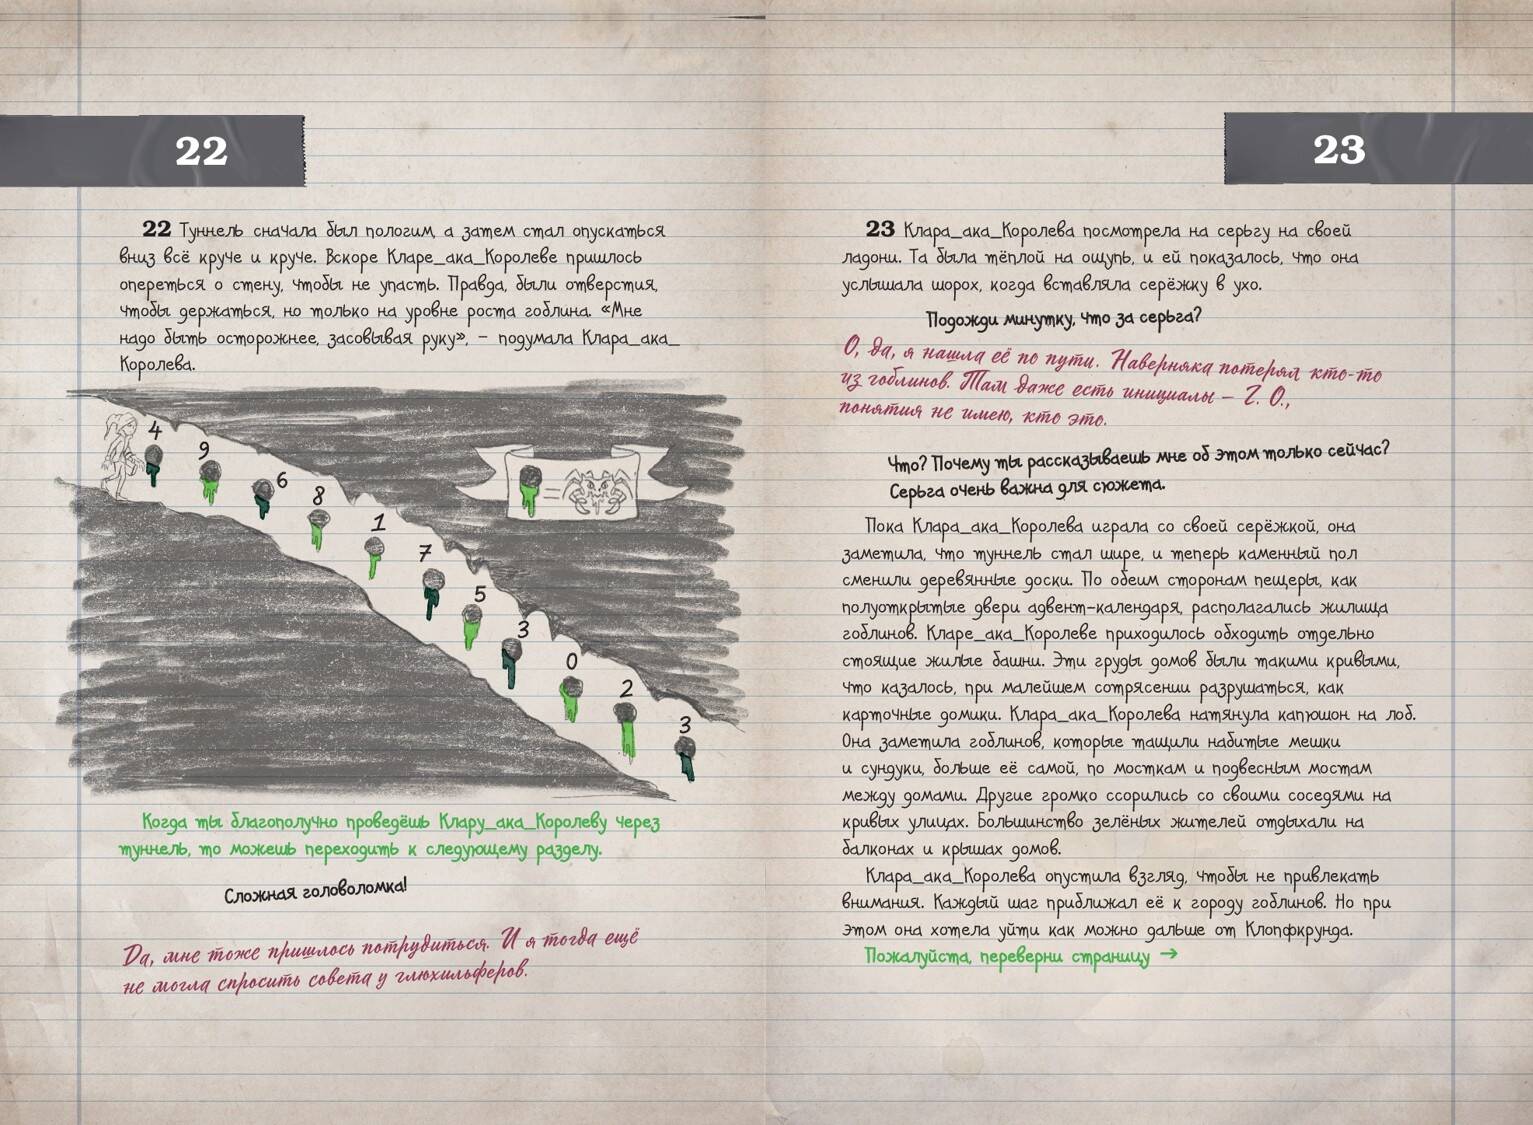 22
22 Туннель сначала был пологим, а затем стал опускаться
вниз всё круче и круче. Вскоре Кларе_ака_Королеве пришлось
опереться о стену, чтобы не упасть. Правда, были отверстия,
чтобы держаться, но только на уровне роста гоблина. «Мне
надо быть осторожнее, засовывая руку», – подумала Клара_ака_
Королева.
4
9
6
8
1
7
=
5
3
0
2
3
Когда ты благополучно проведёшь Клару_ака_Королеву через
туннель, то можешь переходить к следующему разделу.
Сложная головоломка!
Да, мне тоже пришлось потрудиться. И я тогда ещё
не могла спросить совета у глюхильферов.
23
23 Клара_ака_Королева посмотрела на серьгу на своей
ладони. Та была тёплой на ощупь, и ей показалось, что она
услышала шорох, когда вставляла серёжку в ухо.
Подожди минутку, что за серьга?
О, да, я нашла её по пути. Наверняка потерял кто-то
из гоблинов. Там даже есть инициалы – Г. О.,
понятия не имею, кто это.
Что? Почему ты рассказываешь мне об этом только сейчас?
Серьга очень важна для сюжета.
Пока Клара_ака_Королева играла со своей серёжкой, она
заметила, что туннель стал шире, и теперь каменный пол
сменили деревянные доски. По обеим сторонам пещеры, как
полуоткрытые двери адвент-календаря, располагались жилища
гоблинов. Кларе_ака_Королеве приходилось обходить отдельно
стоящие жилые башни. Эти груды домов были такими кривыми,
что казалось, при малейшем сотрясении разрушаться, как
карточные домики. Клара_ака_Королева натянула капюшон на лоб.
Она заметила гоблинов, которые тащили набитые мешки
и сундуки, больше её самой, по мосткам и подвесным мостам
между домами. Другие громко ссорились со своими соседями на
кривых улицах. Большинство зелёных жителей отдыхали на
балконах и крышах домов.
Клара_ака_Королева опустила взгляд, чтобы не привлекать
внимания. Каждый шаг приближал её к городу гоблинов. Но при
этом она хотела уйти как можно дальше от Клопфкрунда.
Пожалуйста, переверни страницу →